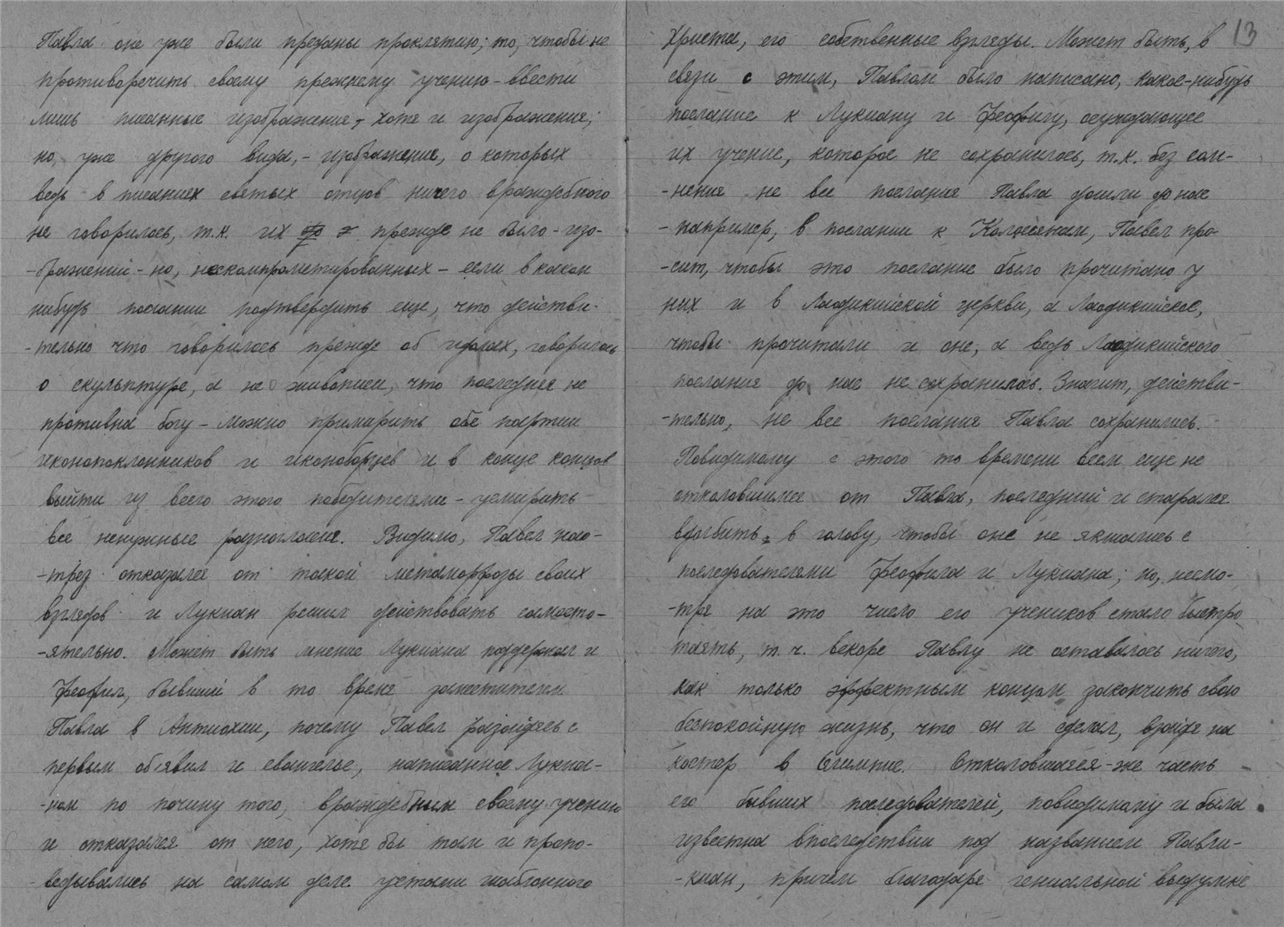 Павла оне уже были преданы проклятию; то, чтобы не
противоречить своему прежнему учению – ввести
лишь писанные изображение, хотя и изображения,
но, уже другого вида, – изображение, о которых
ведь в писаниях святых отцов ничего враждебного
не говорилось, т.к. их прежде не было – изо-
-бражений – но, нескомпрометированных – если в каком
нибудь послании подтвердить еще, что действи-
-тельно что говорилось прежде об идолах, говорилось
о скульптуре, а не живописи, что последнее не
противна богу – можно примирить обе партии
иконопоклонников и иконоборцев и в конце концов
выйти из всего этого победителями – усмирить
все ненужные разногласия. Видимо, Павел нао-
-трез отказался от такой метаморфозы своих
взглядов и Лукиан решил действовать самосто-
-ятельно. Может быть мнение Лукиана поддержал и
Феофил, бывший в то время заместителем
Павла в Антиохии, почему Павел разойдясь с
первым об'явил и евангелье, написанное Лукиа-
-ном по почину того, враждебным своему учению
и отказался от него, хотя бы там и пропо-
-ведывались на самом деле устами шаблонного
13
Христа, его собственные взгляды. Может быть, в
связи с этим, Павлом было написано, какое-нибудь
послание к Лукиану и Феофилу, осуждающее
их учение, которое не сохранилось, т.к. без сом-
-нения не все послания Павла дошли до нас
-например, в послании к Колоссянам, Павел про-
-сит, чтобы это послание было прочитано у
них и в Лаодикийской церкви, а Лаодикийское,
чтобы прочитали и оне, а ведь Лаодикийского
послания до нас не сохранилось. Значит, действи-
-тельно, не все послания Павла сохранились.
Повидимому с этого то времени всем еще не
отколовшимся от Павла, последний и старался
вдолбить в голову, чтобы оне не якшались с
последователями Феофила и Лукиана; но, несмо-
-тря на это число его учеников стало быстро
таять, т.ч. вскоре Павлу не оставалось ничего,
как только эффектным концом закончить свою
беспокойную жизнь, что он и сделал, взойдя на
костер в Олимпие. Отколовшаяся-же часть
его бывших последователей, повидимому и была
известна впоследствии под названием Павли-
-киан, причем благодаря гениальной выдумке